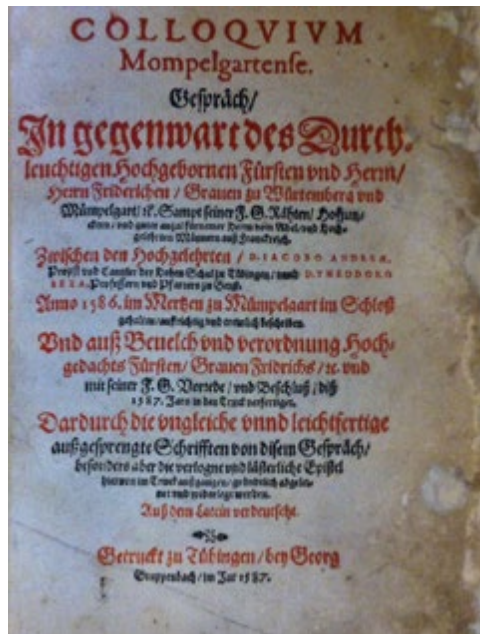 COLLOQVIVM
Mompelgartenſe.
Geſpräch/
In gegenwart des Durch-
leuchtigen Hochgebornen Fürſten vnd Herrn/
Herrn Friderichen / Grauen zu Würtemberg vnd
Mümpelgart/ ꝛc. Sampt ſeiner F. G. Rähten/ Hofjun-
ckern / vnd guter anzal fürnemer Herrn vom Adel vnd Hoch-
gelehrten Männern auß Franckreich.
Zwiſchen den Hochgelehrten / D. IACOBO ANDREÆ,
Propſt vnd Cantzler der Hohen Schul zu Tübingen / vnnd D. THEODORO
BEZA, Profeſſorn vnd Pfarrern zu Genff.
Anno 1586. im Mertzen zu Mümpelgart im Schloß
gehalten/ auffrichtig vnd trewlich beſchriben.
Vnd auß Beuelch vnd verordnung Hoch-
gedachts Fürſten/ Grauen Fridrichs / ꝛc. vnd
mit ſeiner F. G. Vorrede / vnd Beſchluß / diß
1587. Jars in den Truck verfertiget.
Dardurch die vngleiche vnnd leichtfertige
außgeſprengte Schrifften von diſem Geſpräch/
beſonders aber die verlogne vnd läſterliche Epiſtel
hieruon im Truck außgangen/ gründtlich abgelei-
net vnd widerlegt werden.
Auß dem Latein verdeutſcht.
Getruckt zu Tübingen / bey Georg
Gruppenbach / im Jar 1587.